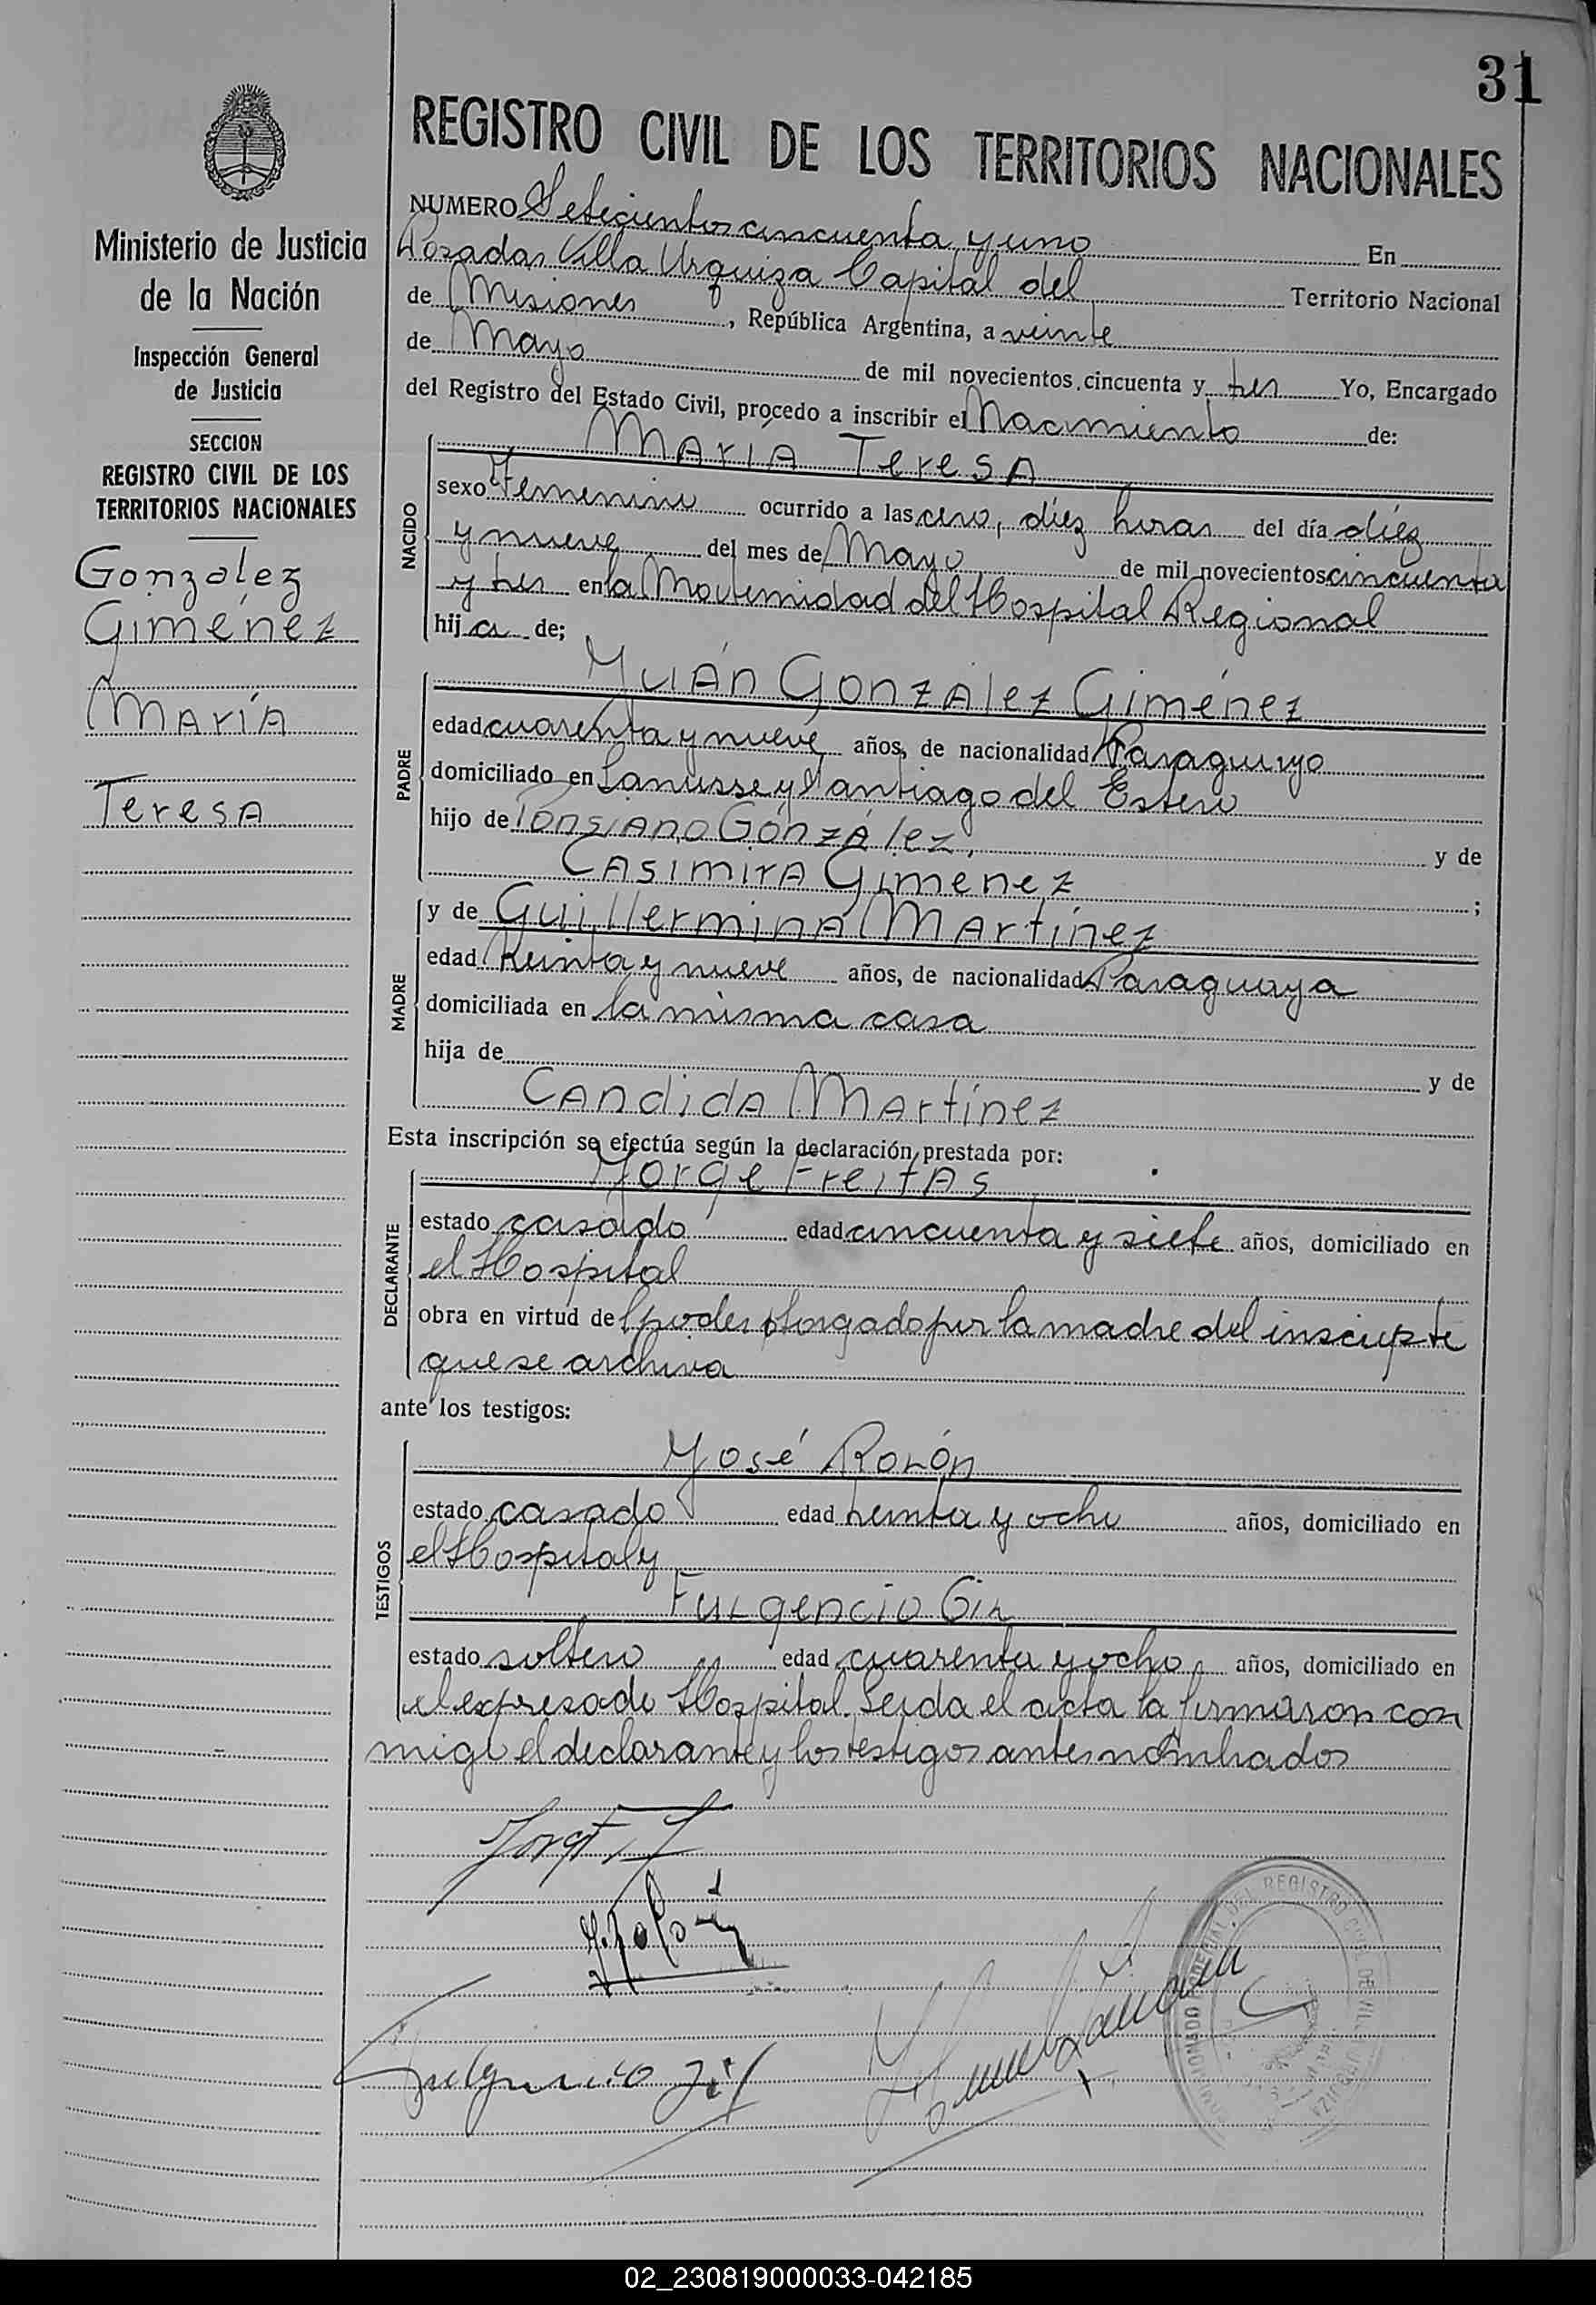 31
REGISTRO CIVIL DE LOS TERRITORIOS NACIONALES
Ministerio de Justicia
de la Nación
Inspección General
de Justicia
SECCION
REGISTRO CIVIL DE LOS
TERRITORIOS NACIONALES
González
Giménez
María
Teresa
NUMERO Setecientos cincuenta y uno En
Posadas Villa Urquiza Capital del Territorio Nacional
de Misiones, República Argentina, a veinte
de Mayo de mil novecientos cincuenta y tres Yo, Encargado
del Registro del Estado Civil, procedo a inscribir el Nacimiento de:
NACIDO
MARÍA TeresA
sexo Femenino ocurrido a las cero, diez horas del día diez
y nueve del mes de Mayo de mil novecientos cincuenta
y tres en la Maternidad del Hospital Regional
hija de;
PADRE
Juán González Giménez
edad cuarenta y nueve años, de nacionalidad Paraguayo
domiciliado en Lanusse y Santiago del Estero
hijo de Ponsiano González, y de
Casimira Giménez ;
MADRE
y de Guillermina Martínez
edad treinta y nueve años, de nacionalidad Paraguaya
domiciliada en la misma casa
hija de y de
Candida Martínez
Esta inscripción se efectúa según la declaración prestada por:
DECLARANTE
Jorge Freitas
estado casado edad cincuenta y siete años, domiciliado en
el Hospital
obra en virtud del poder otorgado por la madre del inscripte
que se archiva
ante los testigos:
TESTIGOS
José Rolón
estado casado edad treinta y ocho años, domiciliado en
el Hospital y
Fulgencio Gil
estado soltero edad cuarenta y ocho años, domiciliado en
el expresado Hospital. Leida el acta la firmaron con
migo el declarante y los testigos antes nombrados
Fulgencio Gil
DEL REGISTRO CIVIL DE VILLA URQUIZA
02_230819000033-042185